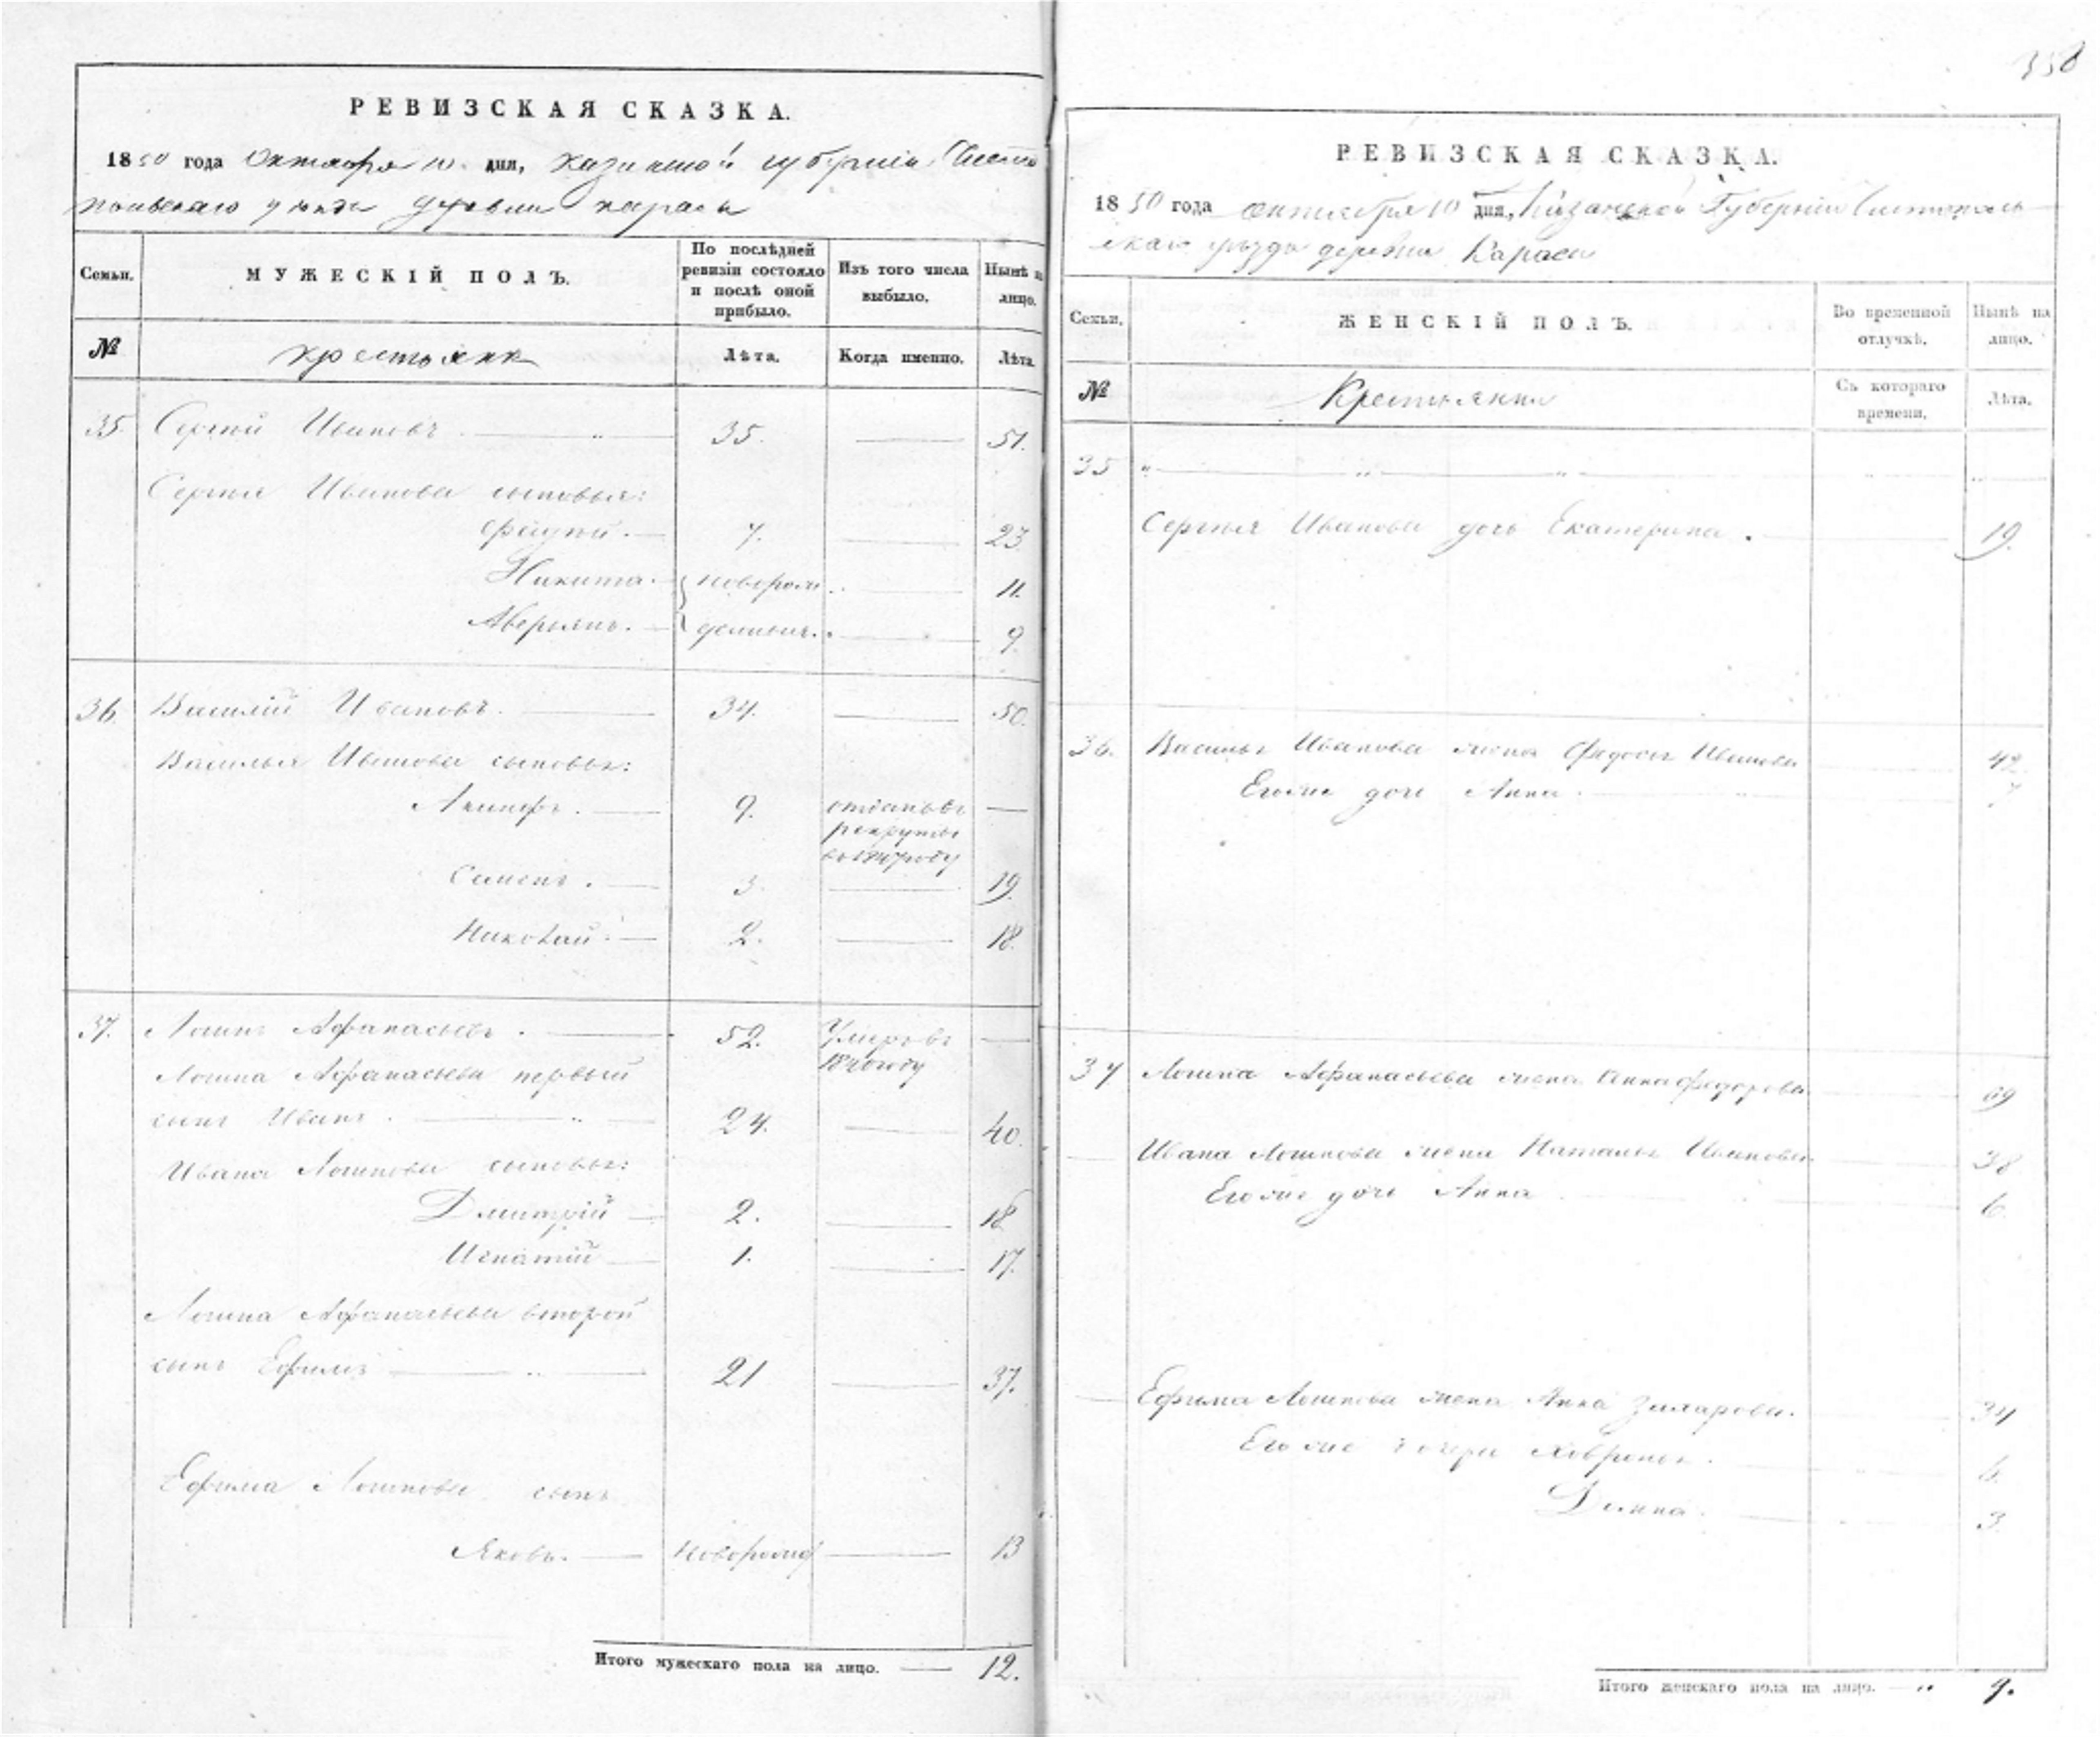 338
РЕВИЗСКАЯ СКАЗКА.
1850 года Октября 10 дня, Казанской губернiи Чисто
польскаго уезда деревни Караси
Семьи. МУЖЕСКІЙ ПОЛЪ. По послѣдней ревизіи состояло и послѣ оной прибыло. Изъ того числа выбыло. Нынѣ на лицо.
№ крестьяне Лѣта. Когда именно. Лѣта.
35. Сергей Ивановъ 35. 51.
Сергея Иванова сыновья:
7. 23.
Никита. новорож 11.
Аверьянъ. денные. 9.
36. Василій Ивановъ. 34. 50.
Василья Иванова сыновья:
Акинфъ. 9. отданъ въ
рекруты
году
Семенъ. 3. 19.
Николай. 2. 18.
37. Логинъ Афанасьевъ. 52. Умеръ въ
Логина Афанасьева первый 1840 году
сынъ Иванъ. 24. 40.
Ивана Логинова сыновья:
Дмитрій 2. 18.
Игнатій 1. 17.
Логина Афанасьева второй
сынъ Ефимъ 21 37.
Ефима Логинова сынъ
Яковъ. Новорожд 13
Итого мужескаго пола на лицо. 12.
РЕВИЗСКАЯ СКАЗКА.
1850 года октября 10 дня, Казанской Губерніи Чистополь
скаго уезда деревни Караси
Семьи. ЖЕНСКІЙ ПОЛЪ. Во временной отлучкѣ. Нынѣ на лицо.
№ Крестьянки Съ котораго времени. Лѣта.
35
Сергея Иванова дочь Екатерина. 19.
36. Василья Иванова жена Федосья Иванова 42.
Егоже дочь Анна.
37 Логина Афанасьева жена Анна Федорова 69
Ивана Логинова жена Наталья Иванова 38
Егоже дочь Анна 6.
Ефима Логинова жена Анна Захарова. 34
Егоже дочери Хавронья. 6.
Домна. 3.
Итого женскаго пола на лицо. 9.